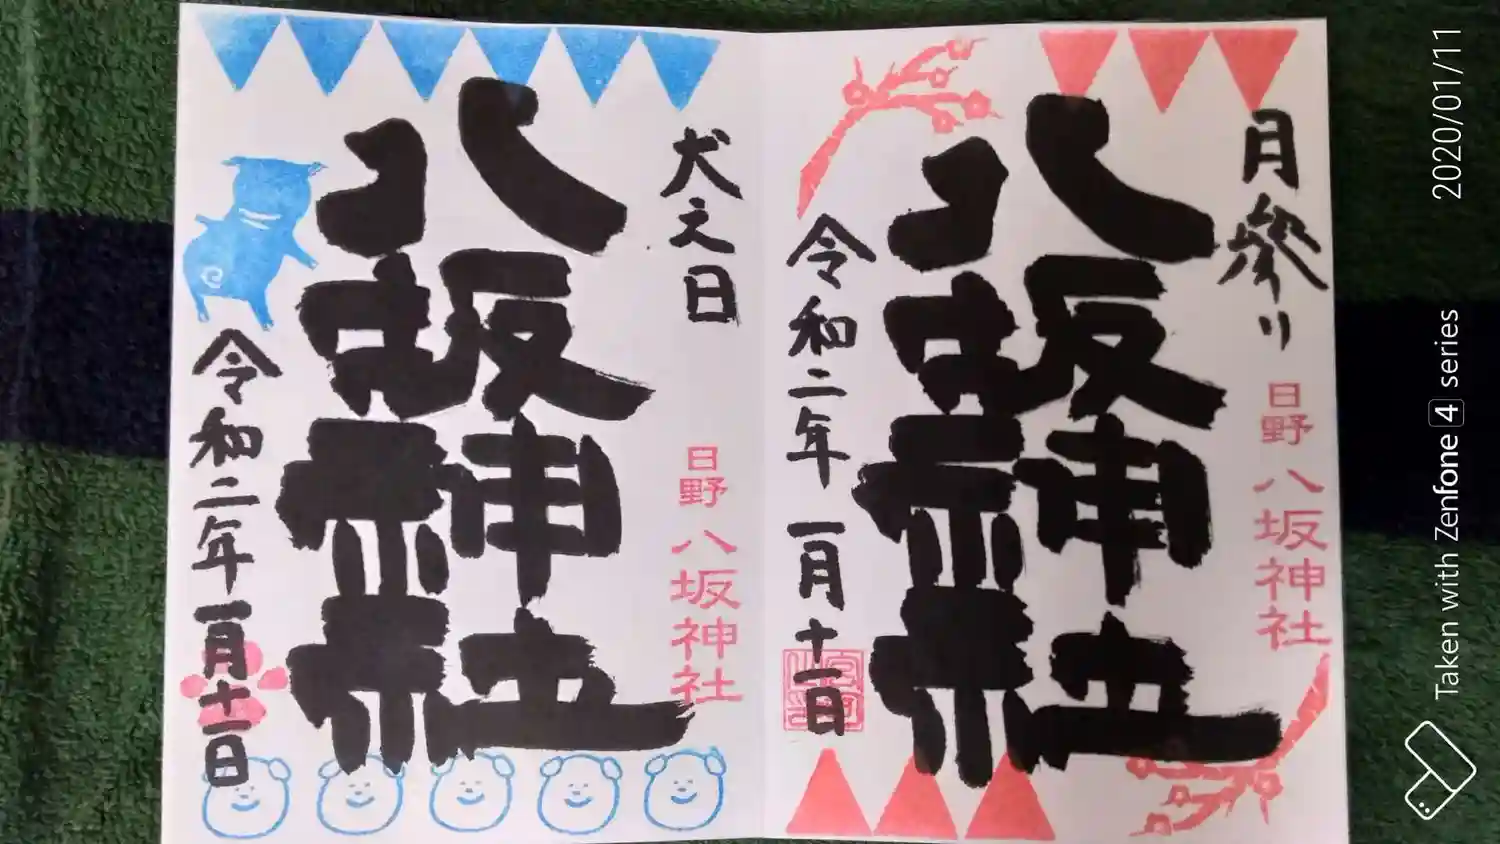 月参り
日野
八坂神社
八坂神社
令和二年一月十一日
犬之日
日野
八坂神社
八坂神社
令和二年一月十一日
2020/01/11
Taken with Zenfone 4 series